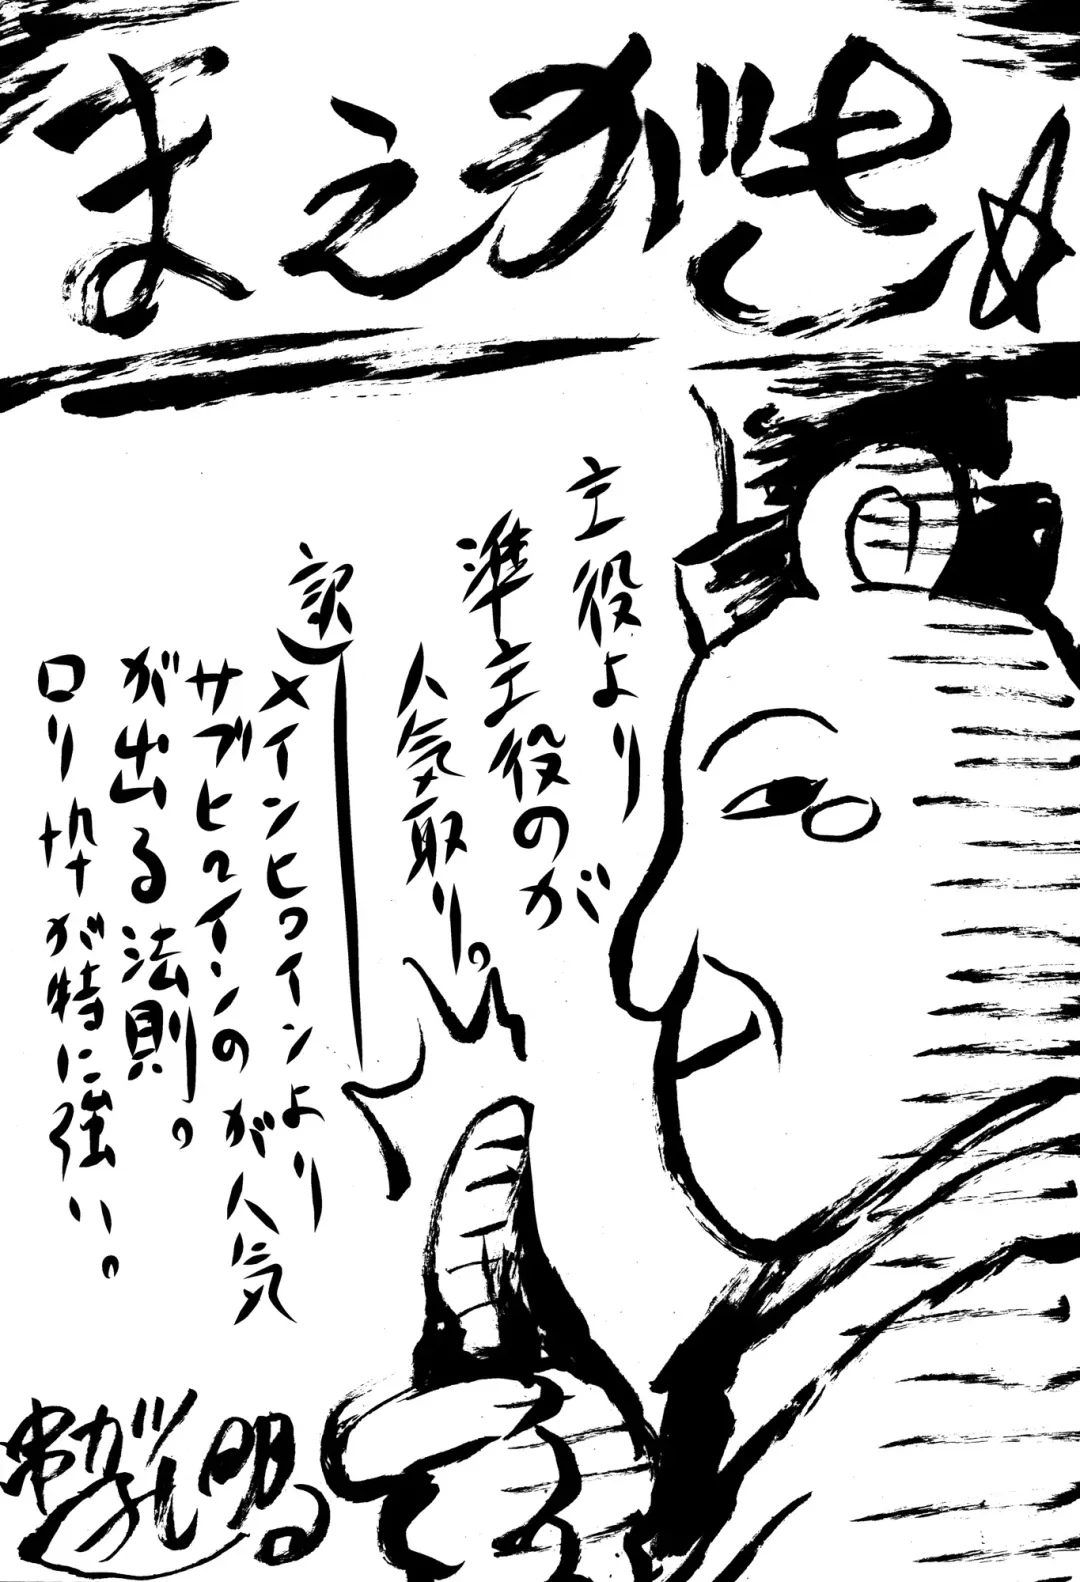 まえがき☆
主役より
準主役のが
人気取り。
訳)メインヒロインより
サブヒロインのが人気
が出る法則。
ロリ枠が特に強い。
串カツ
明